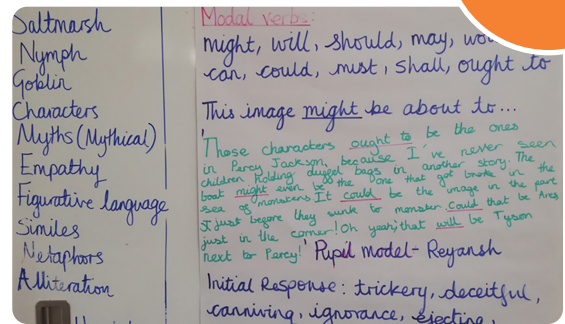 Saltmarsh
Nymph
Goblin
Characters
Myths (Mythical)
Empathy
Figurative language
Similes
Metaphors
Alliteration
Modal verbs:
might, will, should, may,
can, could, must, shall, ought to
This image might be about to...
'These characters ought to be the ones
in Percy Jackson, because I've never seen
children holding duffel bags in another story. The
boat might even be the one that got broke in the
sea of monsters. It could be the image in the part
just before they sunk to monster. Could that be Ares
just in the corner! Oh yeah, that will be Tyson
next to Percy!' Pupil model- Reyansh
Initial Response: trickery, deceitful,
canniving, ignorance, ejecting,